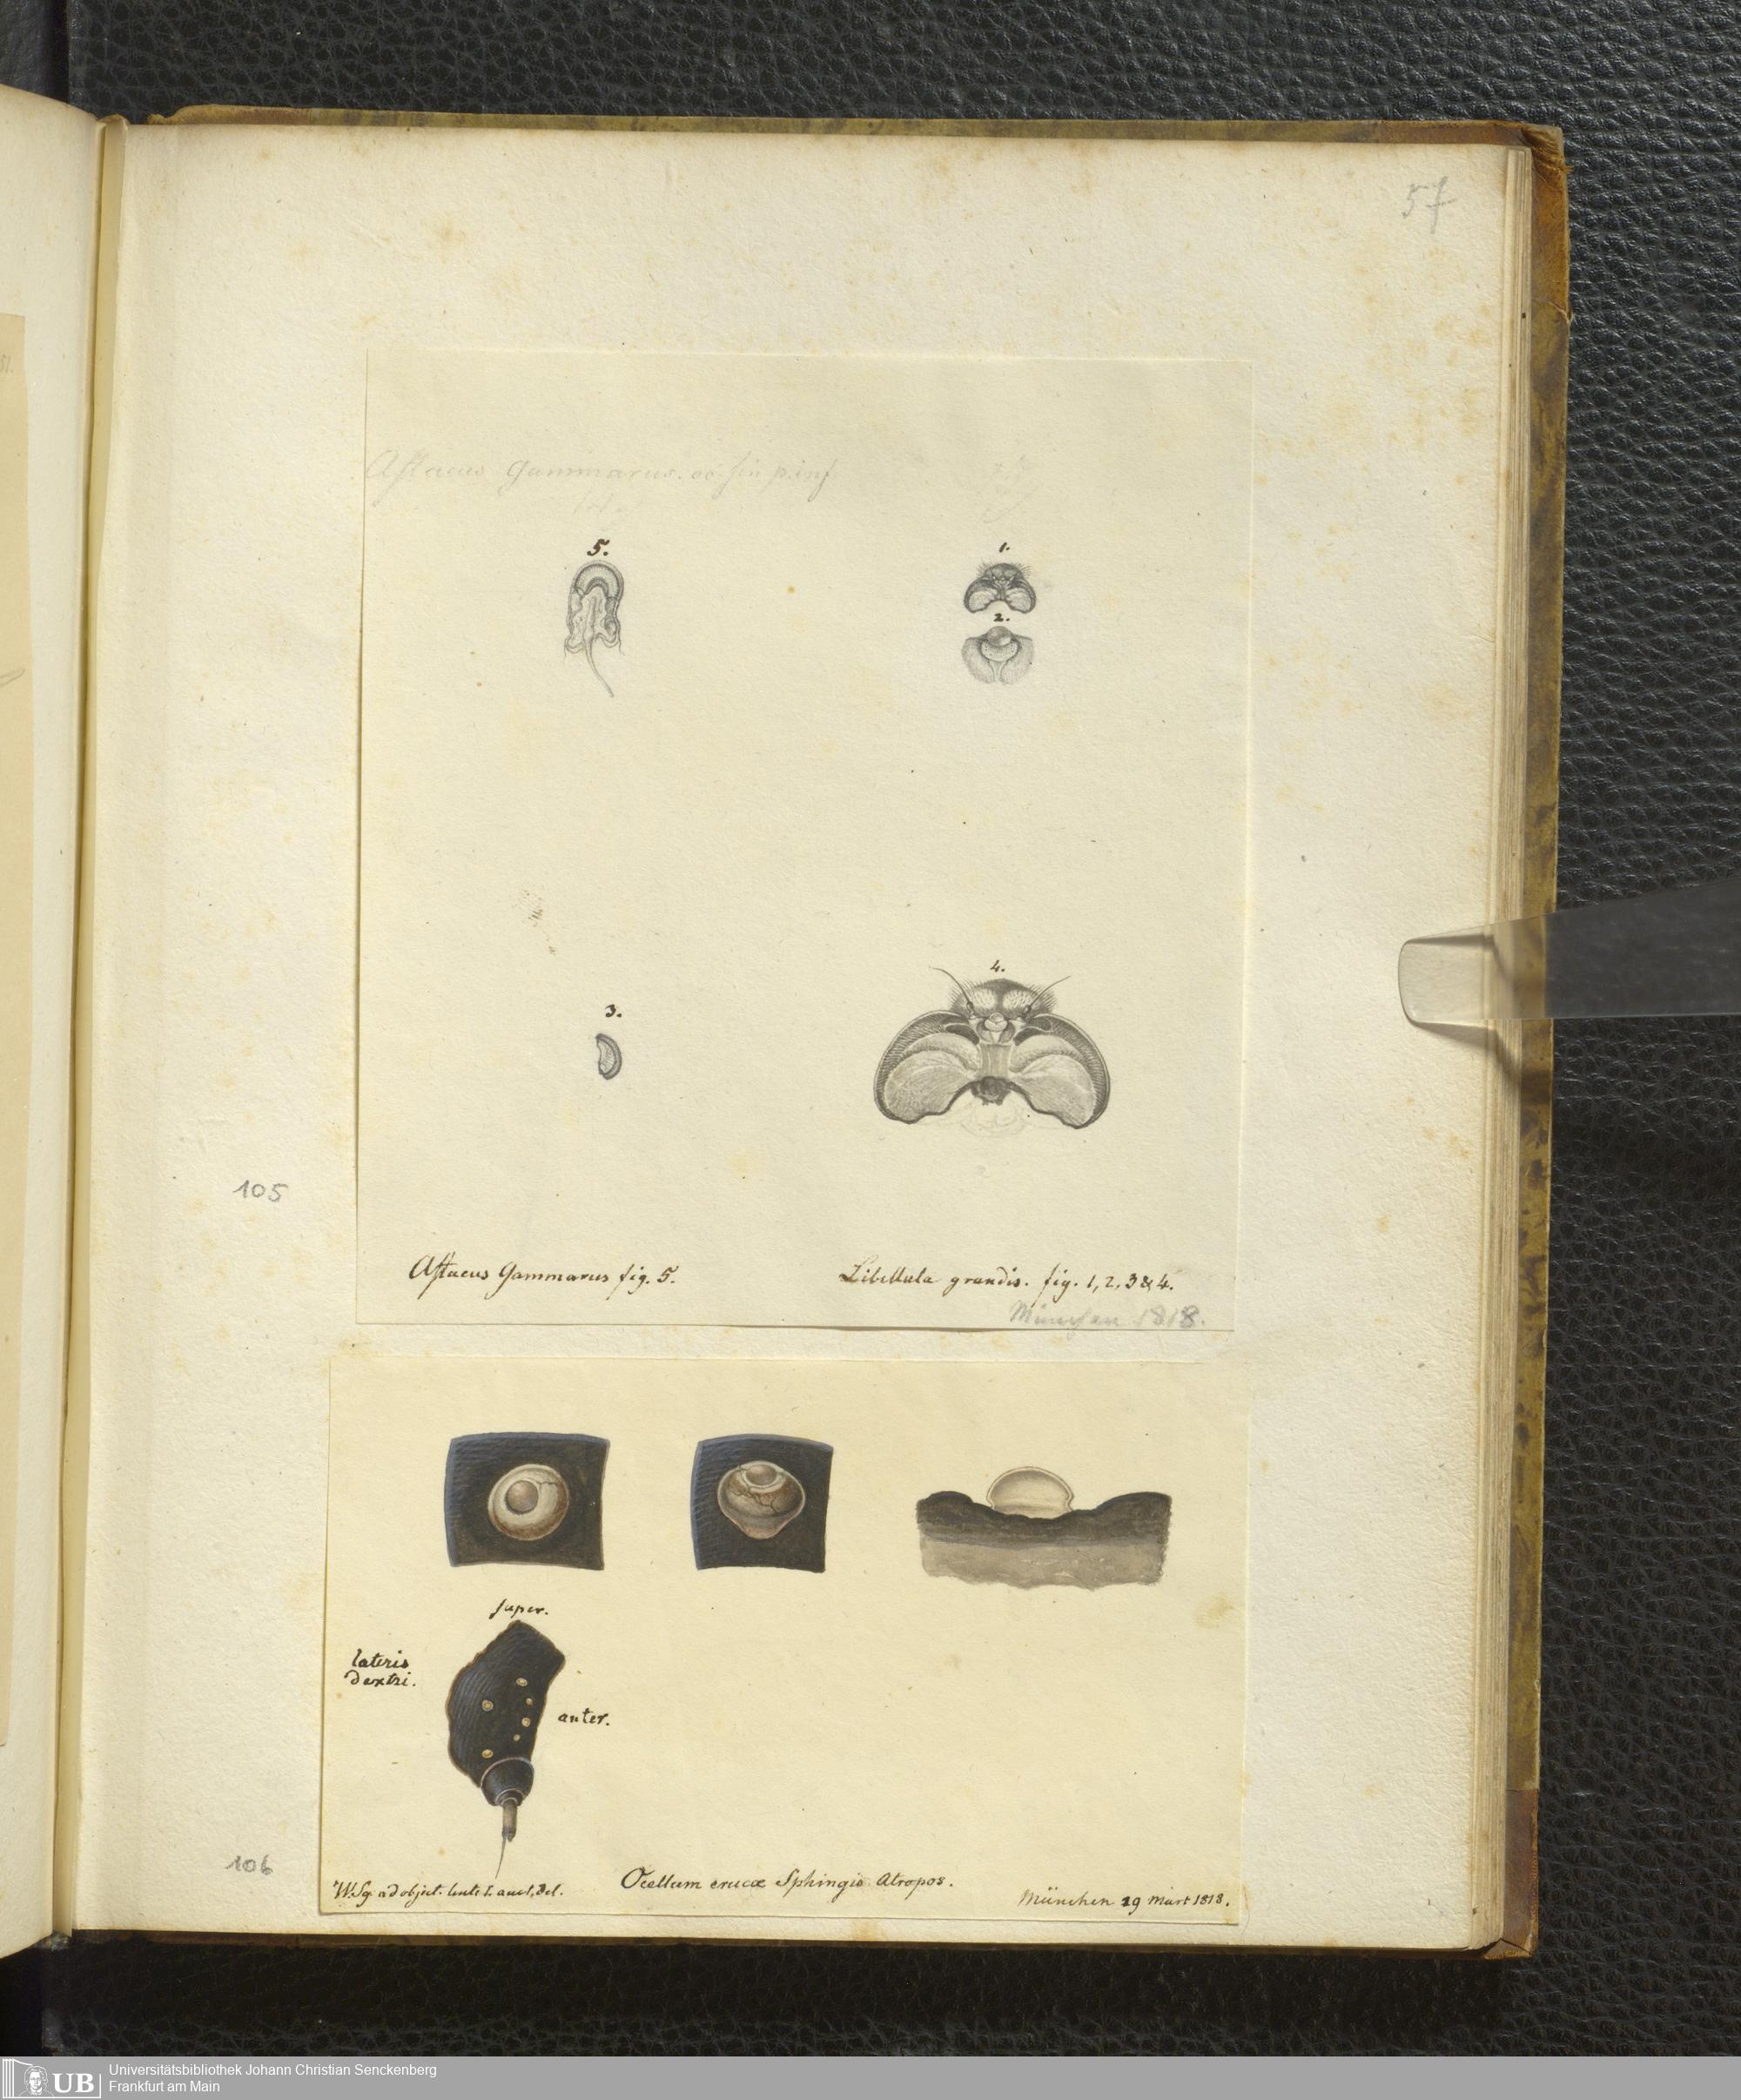 57
Astacus Gammarus. oc. sin p. inf
5.
1.
2.
3.
4.
105
Astacus Gammarus fig. 5.
Libellula grandis. fig. 1, 2, 3 & 4.
München 1818.
super.
lateris
dextri.
anter.
106
W.Sg. ad object. lente t. auct, del.
Ocellum erucæ Sphingis Atropos.
München 29 Märt 1818.
UB
Universitätsbibliothek Johann Christian Senckenberg
Frankfurt am Main